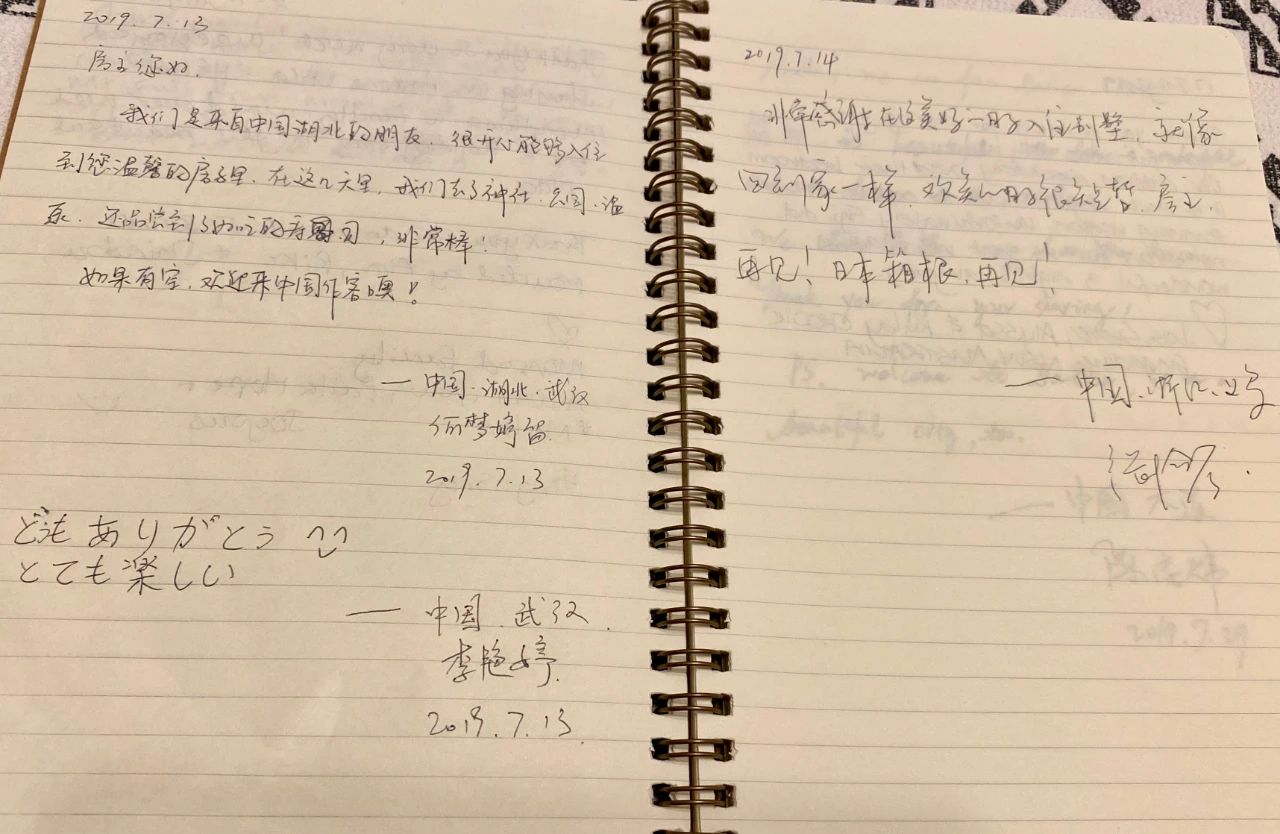 2019.7.13
房主您好.
我们是来自中国湖北的朋友，很开心能够入住
到您温馨的房子里，在这几天里，我们去了神社、公园、温
泉，还品尝到了好吃的寿司，非常棒！
如果有空，欢迎来中国作客噢！
— 中国·湖北·武汉
何梦婷留
2019.7.13
どもありがとう
とても楽しい
— 中国·武汉.
李艳婷.
2019.7.13
2019.7.14
非常感谢在这美好一时入住别墅，就像
回到家一样，欢美时很短暂，房主，
再见！日本箱根，再见！
— 中国·浙江·